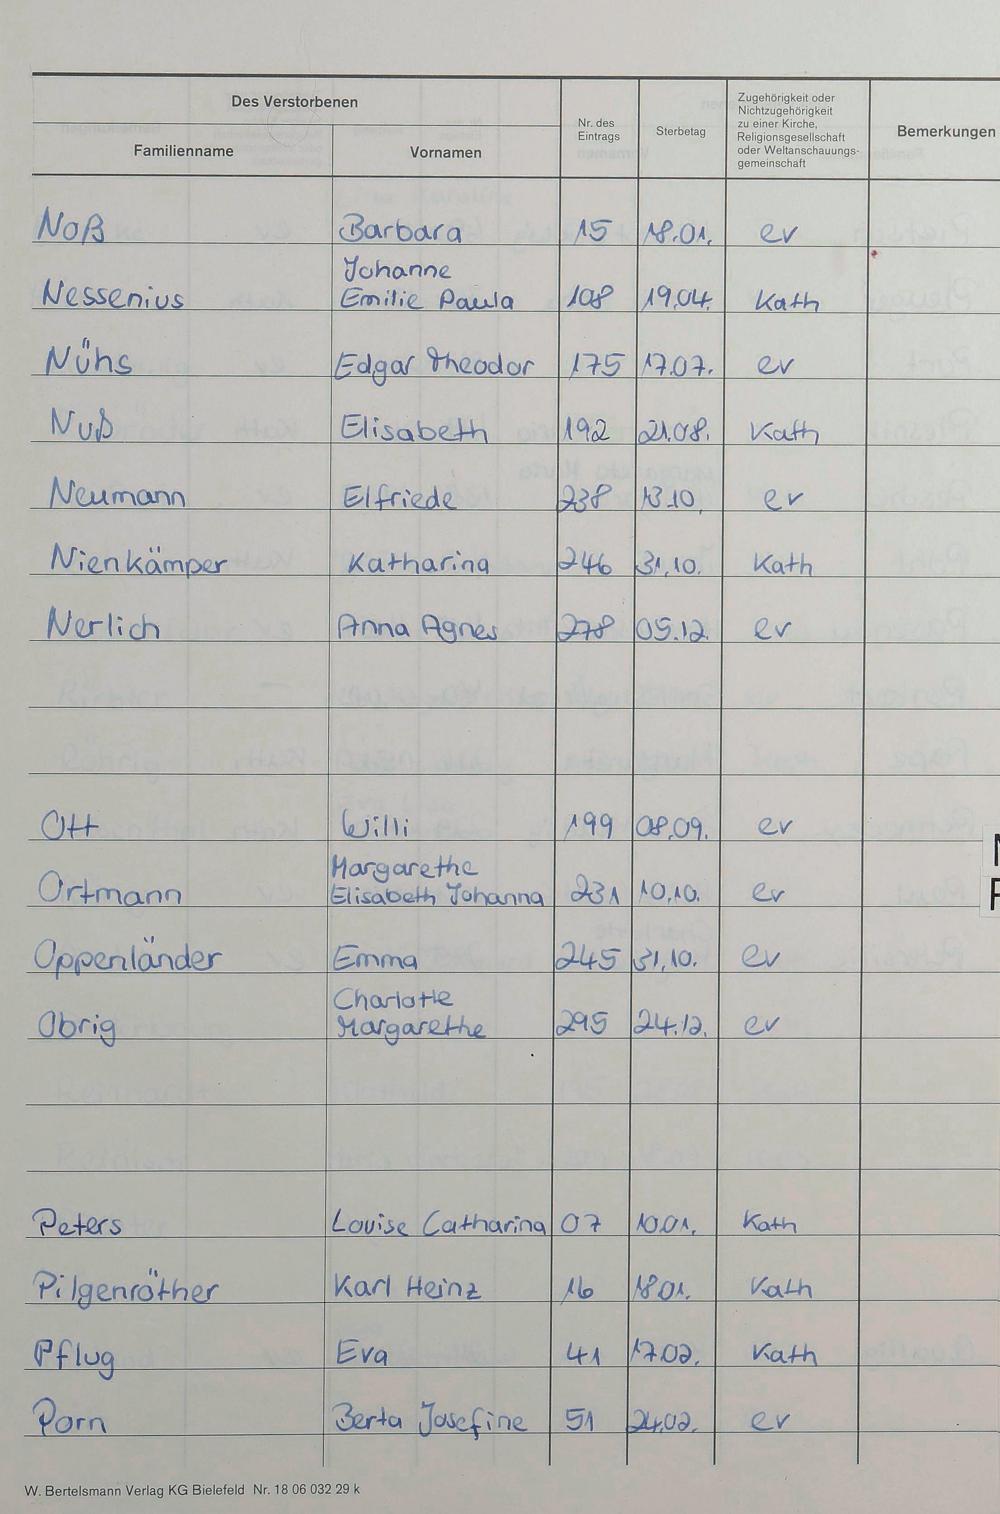 Des Verstorbenen
Familienname
Vornamen
Nr. des
Eintrags
Sterbetag
Zugehörigkeit oder
Nichtzugehörigkeit
zu einer Kirche,
Religionsgesellschaft
oder Weltanschauungs-
gemeinschaft
Bemerkungen
Noß Barbara 15 18.01. ev
Johanne
Nessenius Emilie Paula 108 19.04. Kath
Nühs Edgar Theodor 175 17.07. ev
Nuß Elisabeth 192 21.08. Kath
Neumann Elfriede 238 13.10. ev
Nienkämper Katharina 246 31.10. Kath
Nerlich Anna Agnes 278 05.12. ev
Ott Willi 199 08.09. ev
Margarethe
Ortmann Elisabeth Johanna 231 10.10. ev
Oppenländer Emma 245 31.10. ev
Charlotte
Obrig Margarethe 295 24.12. ev
Peters Louise Catharina 07 10.01. Kath
Pilgenröther Karl Heinz 16 18.01. Kath
Pflug Eva 41 17.02. Kath
Porn Berta Josefine 51 24.02. ev
W. Bertelsmann Verlag KG Bielefeld Nr. 18 06 032 29 k